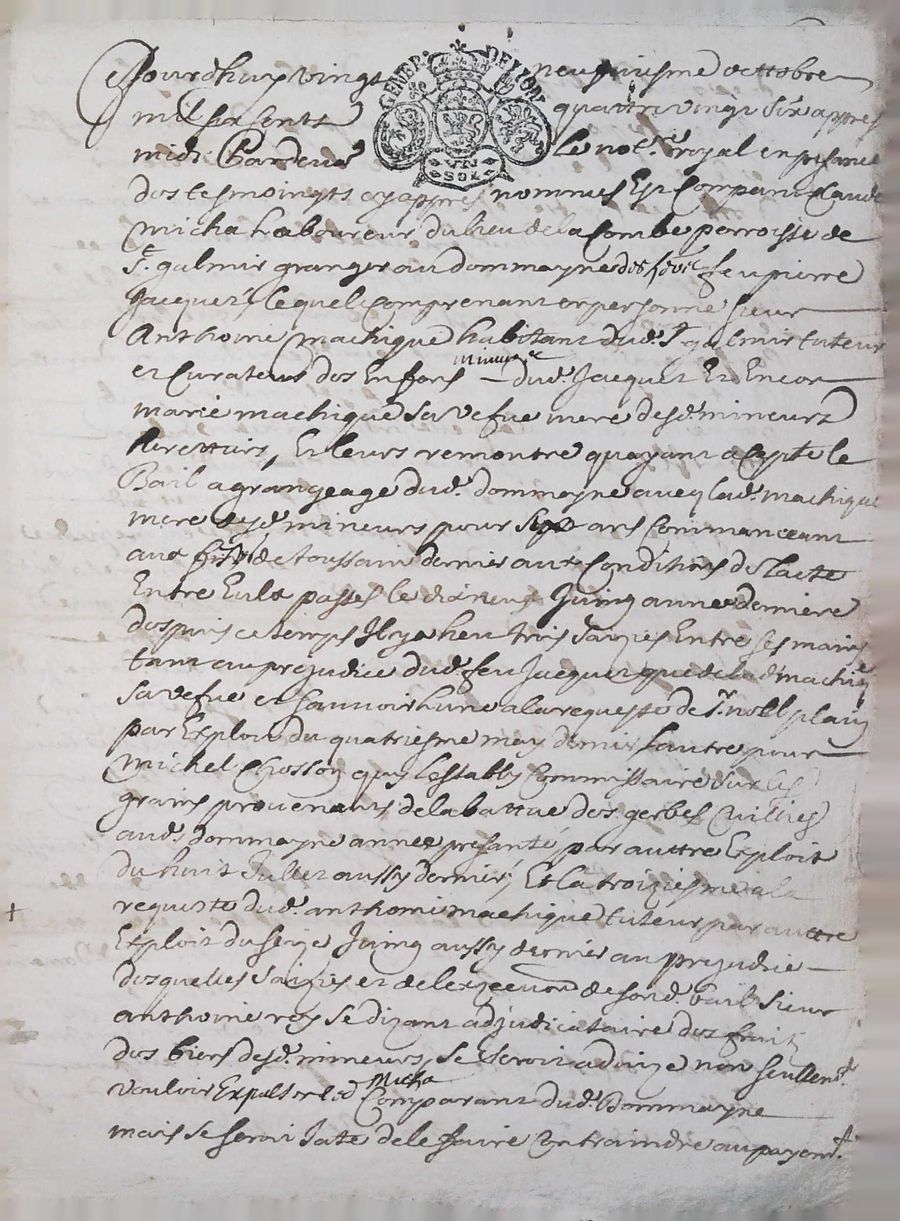 GENER. DE LYON
VN SOS
Jourdhuy vingt neufviesme octobre
mil six cents quattre vingt six appres
midi Pardevt le notre royal en presance
des tesmoingts cy appres nommes Est Comparu Claude
Micha Laboureur du lieu de la Combe parroisse de
St galmir granger au dommayne des feu pierre
Jacquet, lequel comprenant en personne sieur
Anthoine Machique habitant dud. St galmir tuteur
et Curateur des Enfans mineurs dud. Jacquet Et Encor
marie machique sa vefue mere desd. mineurs
Et leurs remontre quayant accepte le
Bail a grangeage dud. dommayne avec lad. machique
mere desd. mineurs pour ans Commanceant
aux de toussain dernier aux Conditions de Lacte
Entre Eulx passes le dixneuf Juing annee derniere
despuis ce temps Il y a heu trois saizies Entre ses mains
tant au prejudice dud. feu Jacquet que de lad. machique
sa vefue et scauvoir hune a la requeste de Sr noel plain
par Exploit du quatriesme may dernier lautre pour
Michel Chosson quy lestably Commissaire sur les
grains provenants de la battue des gerbes Cuillies
aud. dommayne annee presante, par auttre Exploit
du huit Juillet aussy dernier, Et la troiziesme a la
requeste dud. anthoine machique tuteur par auttre
Exploit du seize Juing aussy dernier au prejudice
desquelles saizies et de lexecution de sond. bail Sieur
anthoine rey se dizant adjudicataire des fruits
des biens desd. mineurs, se seroit advize non seullemt.
vouloir Expulser led Micha Comparant dud. Dommayne
mais se seroit Jate de le faire Contraindre au payemt.